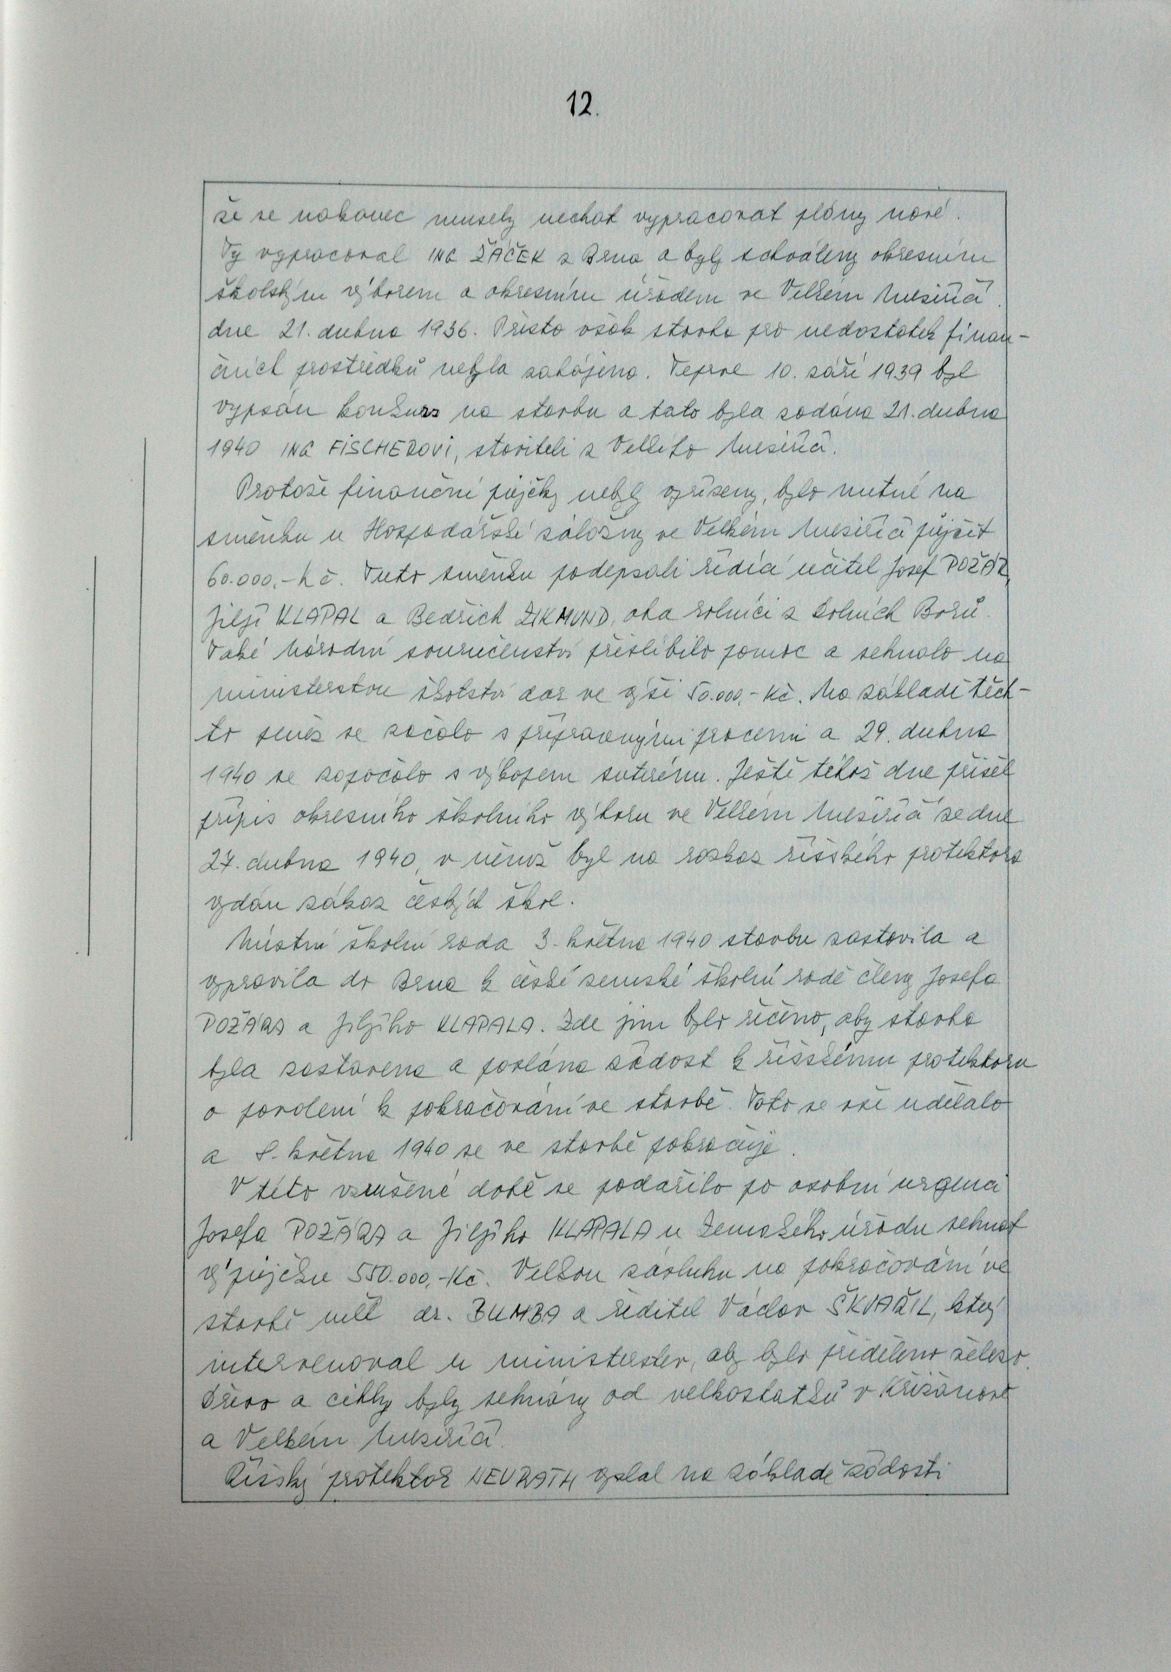 12.
že se nakonec musely nechat vypracovat plány nové.
Ty vypracoval ING ŽÁČEK z Brna a byly schváleny okresním
školským výborem a okresním úřadem ve Velkém Meziříčí
dne 21. dubna 1936. Přesto však stavba pro nedostatek finan-
čních prostředků nebyla zahájena. Teprve 10. září 1939 byl
vypsán konkurs na stavbu a tato byla zadána 21. dubna
1940 ING FISCHEROVI, staviteli z Velkého Meziříčí.
Protože finanční půjčky nebyly vyřízeny, bylo nutné na
směnku u Hospodářské záložny ve Velkém Meziříčí půjčit
60.000,- Kč. Tuto směnku podepsali řídící učitel Josef POŽÁR,
Jiljí KLAPAL a Bedřich ZIKMUND, oba rolníci z Dolních Borů.
Také Národní souručenství přislíbilo pomoc a sehnalo na
ministerstvu školství dar ve výši 50.000,- Kč. Na základě těch-
to peněz se začalo s přípravnými pracemi a 29. dubna
1940 se započalo s výkopem suterénu. Ještě téhož dne přišel
přípis okresního školního výboru ve Velkém Meziříčí ze dne
27. dubna 1940, v němž byl na rozkaz říšského protektora
vydán zákaz českých škol.
Místní školní rada 3. května 1940 stavbu zastavila a
vypravila do Brna k české zemské školní radě členy Josefa
POŽÁRA a Jiljího KLAPALA. Zde jim bylo řečeno, aby stavba
byla zastavena a poslána žádost k říšskému protektoru
o povolení k pokračování ve stavbě. Toto se vše udělalo
a 8. května 1940 se ve stavbě pokračuje.
V této vzrušené době se podařilo po osobní urgenci
Josefa POŽÁRA a Jiljího KLAPALA u Zemského úřadu sehnat
výpůjčku 550.000,- Kč. Velkou zásluhu na pokračování ve
stavbě měl dr. BUMBA a ředitel Václav ŠKVAŘIL, který
intervenoval u ministerstev, aby bylo přiděleno železo.
Dřevo a cihly byly sehnány od velkostatků v Křižanově
a Velkém Meziříčí.
Říšský protektor NEURATH vydal na základě žádosti